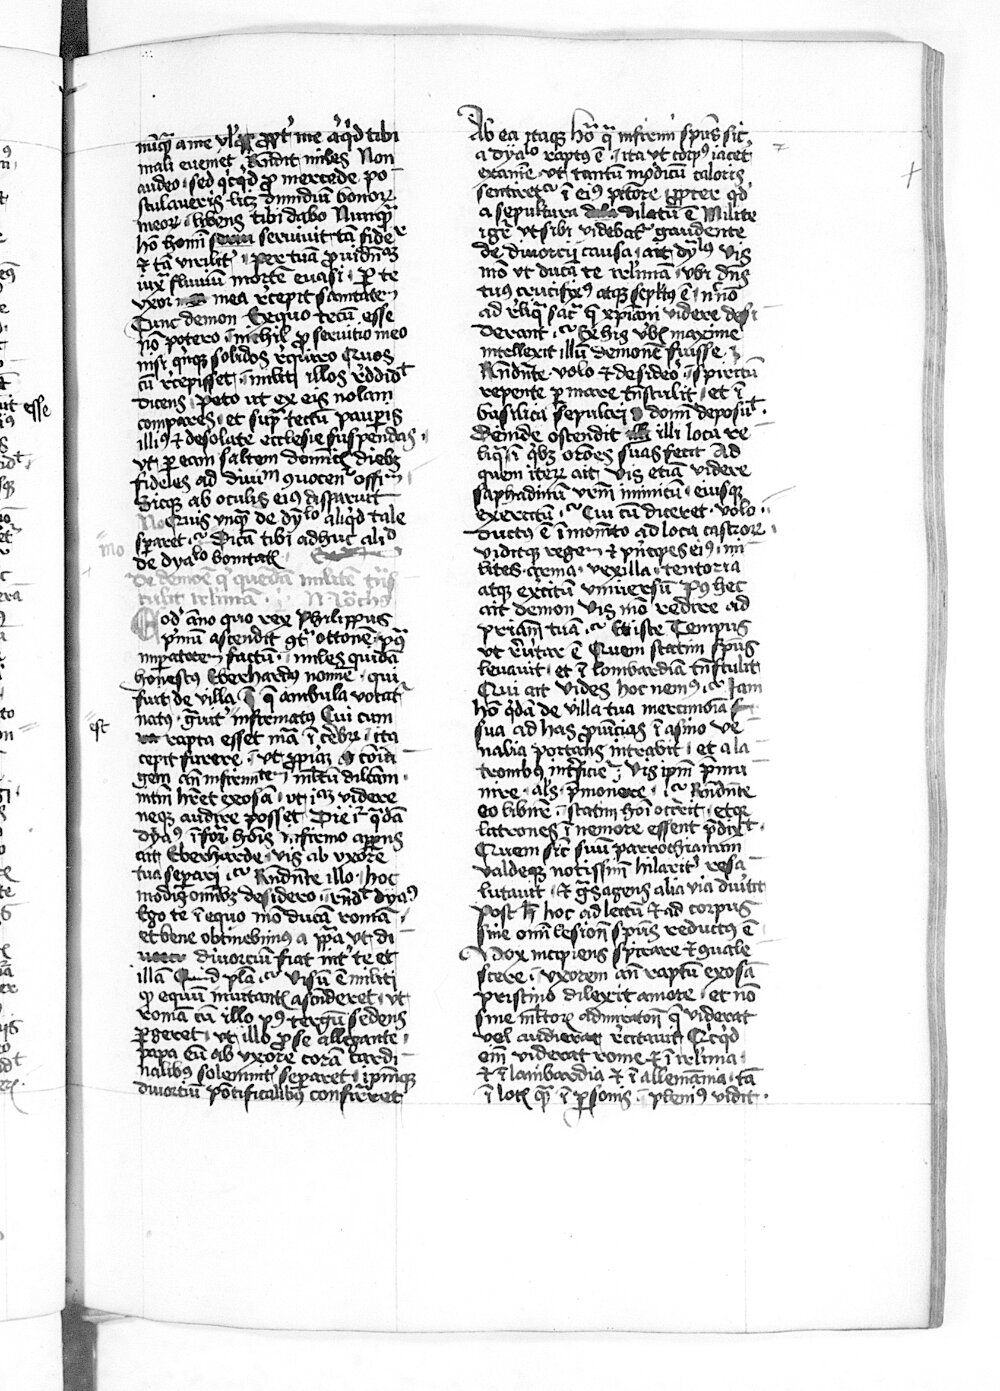 mali evenit Respondit miles Non
audeo · sed quicquid pro mercede po
stulaveris licet dimidium bonorum
meorum · libens tibi dabo Nunquam
homo homini servivit tam fideliter
et tam viriliter · per tuam providentiam
iuxta fluvium mortem evasi · per te
uxor mea recepit sanitatem
Tunc demon Ex quo tecum esse
non potero · nichil pro servitio meo
nisi quinque solidos requiro Quos
cum recepisset · militi illos reddidit
dicens · peto ut ex eis nolam
compares · et supra tectum pauperis
illius et desolate ecclesie suspendas ·
ut per eam saltem dominicis diebus
fideles ad divinum convocentur officium
Sicque ab oculis eius disparuit
No Quis unquam de dyabolo aliquid tale
speraret · Mo Dicam tibi adhuc aliud
de dyaboli bonitate
De demone qui quendam militem trans
tulit ierusalimam
Eodem anno quo rex Philippus
primum ascendit contra ottonem · postquam
imperatorem factum · miles quidam
honestus Eberhardus nomine · qui
fuit de villa que ambula vocatur
natus · graviter infirmatus Cui cum
rapta esset materia in cerebrum · ita
cepit furere · ut propriam coniu
gem ante infirmitatem multum dilectam ·
intantum haberet exosam · ut eam videre
neque audire posset Die quadam
dyabolus in forma hominis infirmo apparens
ait Eberharde · vis ab uxore
tua separari · Respondente illo · hoc
modis omnibus desidero · respondit dyabolus
Ego te in equo meo ducam romam ·
et bene obtinebimus a papa ut di
divortium fiat inter te et
illam Quid plura · Visum est militi
quod equum invitantis ascenderet · ut
romam cum illo post tergum sedens
pergeret · ut illo pro se allegante ·
papa eum ab uxore coram cardi
nalibus solemniter separaret · ipsumque
divortium pontificalibus confirmaret
Ab ea itaque hora qua infirmi spiritus sic
a dyabolo raptus est · ita ut corpus iacet
exanime · ut tantum modicum caloris
sentiretur in eius pectore propter quod
a sepultura dilatum est Milite
igitur ut sibi videbatur gaudente
de divortii causa · ait dyabolus Vis
modo ut ducam te ierusalimam · ubi deus
tuus crucifixus atque sepultus est · necnon
ad reliqua sancta que christiani videre desi
derant · Ex his verbis maxime
intellexit illum demonem fuisse ·
Respondente · volo et desidero · spiritum
repente per mare transtulit · et in
basilica sepulcri domini deposuit ·
deinde ostendit illi loca re
liqua in quibus orationes suas fecit Ad
quem iterum ait · Vis etiam videre
saphadinum vestrum inimicum · eiusque
exercitum · Cui cum diceret · volo ·
ductus est in momento ad loca castrorum ·
viditque regem et principes eius · mi
lites · arma · vexilla · tentoria
atque exercitum universum Post hec
ait demon Vis modo redire ad
patriam tuam · Et iste Tempus
ut revertar est Quem statim spiritus
levavit · et in lombardiam transtulit
Qui ait Vides hoc nemus · Iam
homo quidam de villa tua mercimonia
sua ad has provincias in asino ve
nalia portans intrabit · et a la
tronibus interficietur · Vis ipsum premu
nire · Respondente
eo libenter · statim homini occurrit · et que
latrones in nemore essent predixit ·
Quem sicut suum parrochianum
valdeque notissimum hilariter resa
lutavit · et gratias agens alia via divertit
Post hoc ad lectum et ad corpus
sine omni lesione spiritus reductus est
Mox incipiens spirare et convale
scere · uxorem ante raptum exosam
pristino dilexit amore · et non
sine multorum admiratione que viderat
vel audierat recitavit Quicquid
enim viderat rome et in ierusalima ·
et in lombardia et in allemannia · tam
in locis quam in personis · plenius vidit ·
est